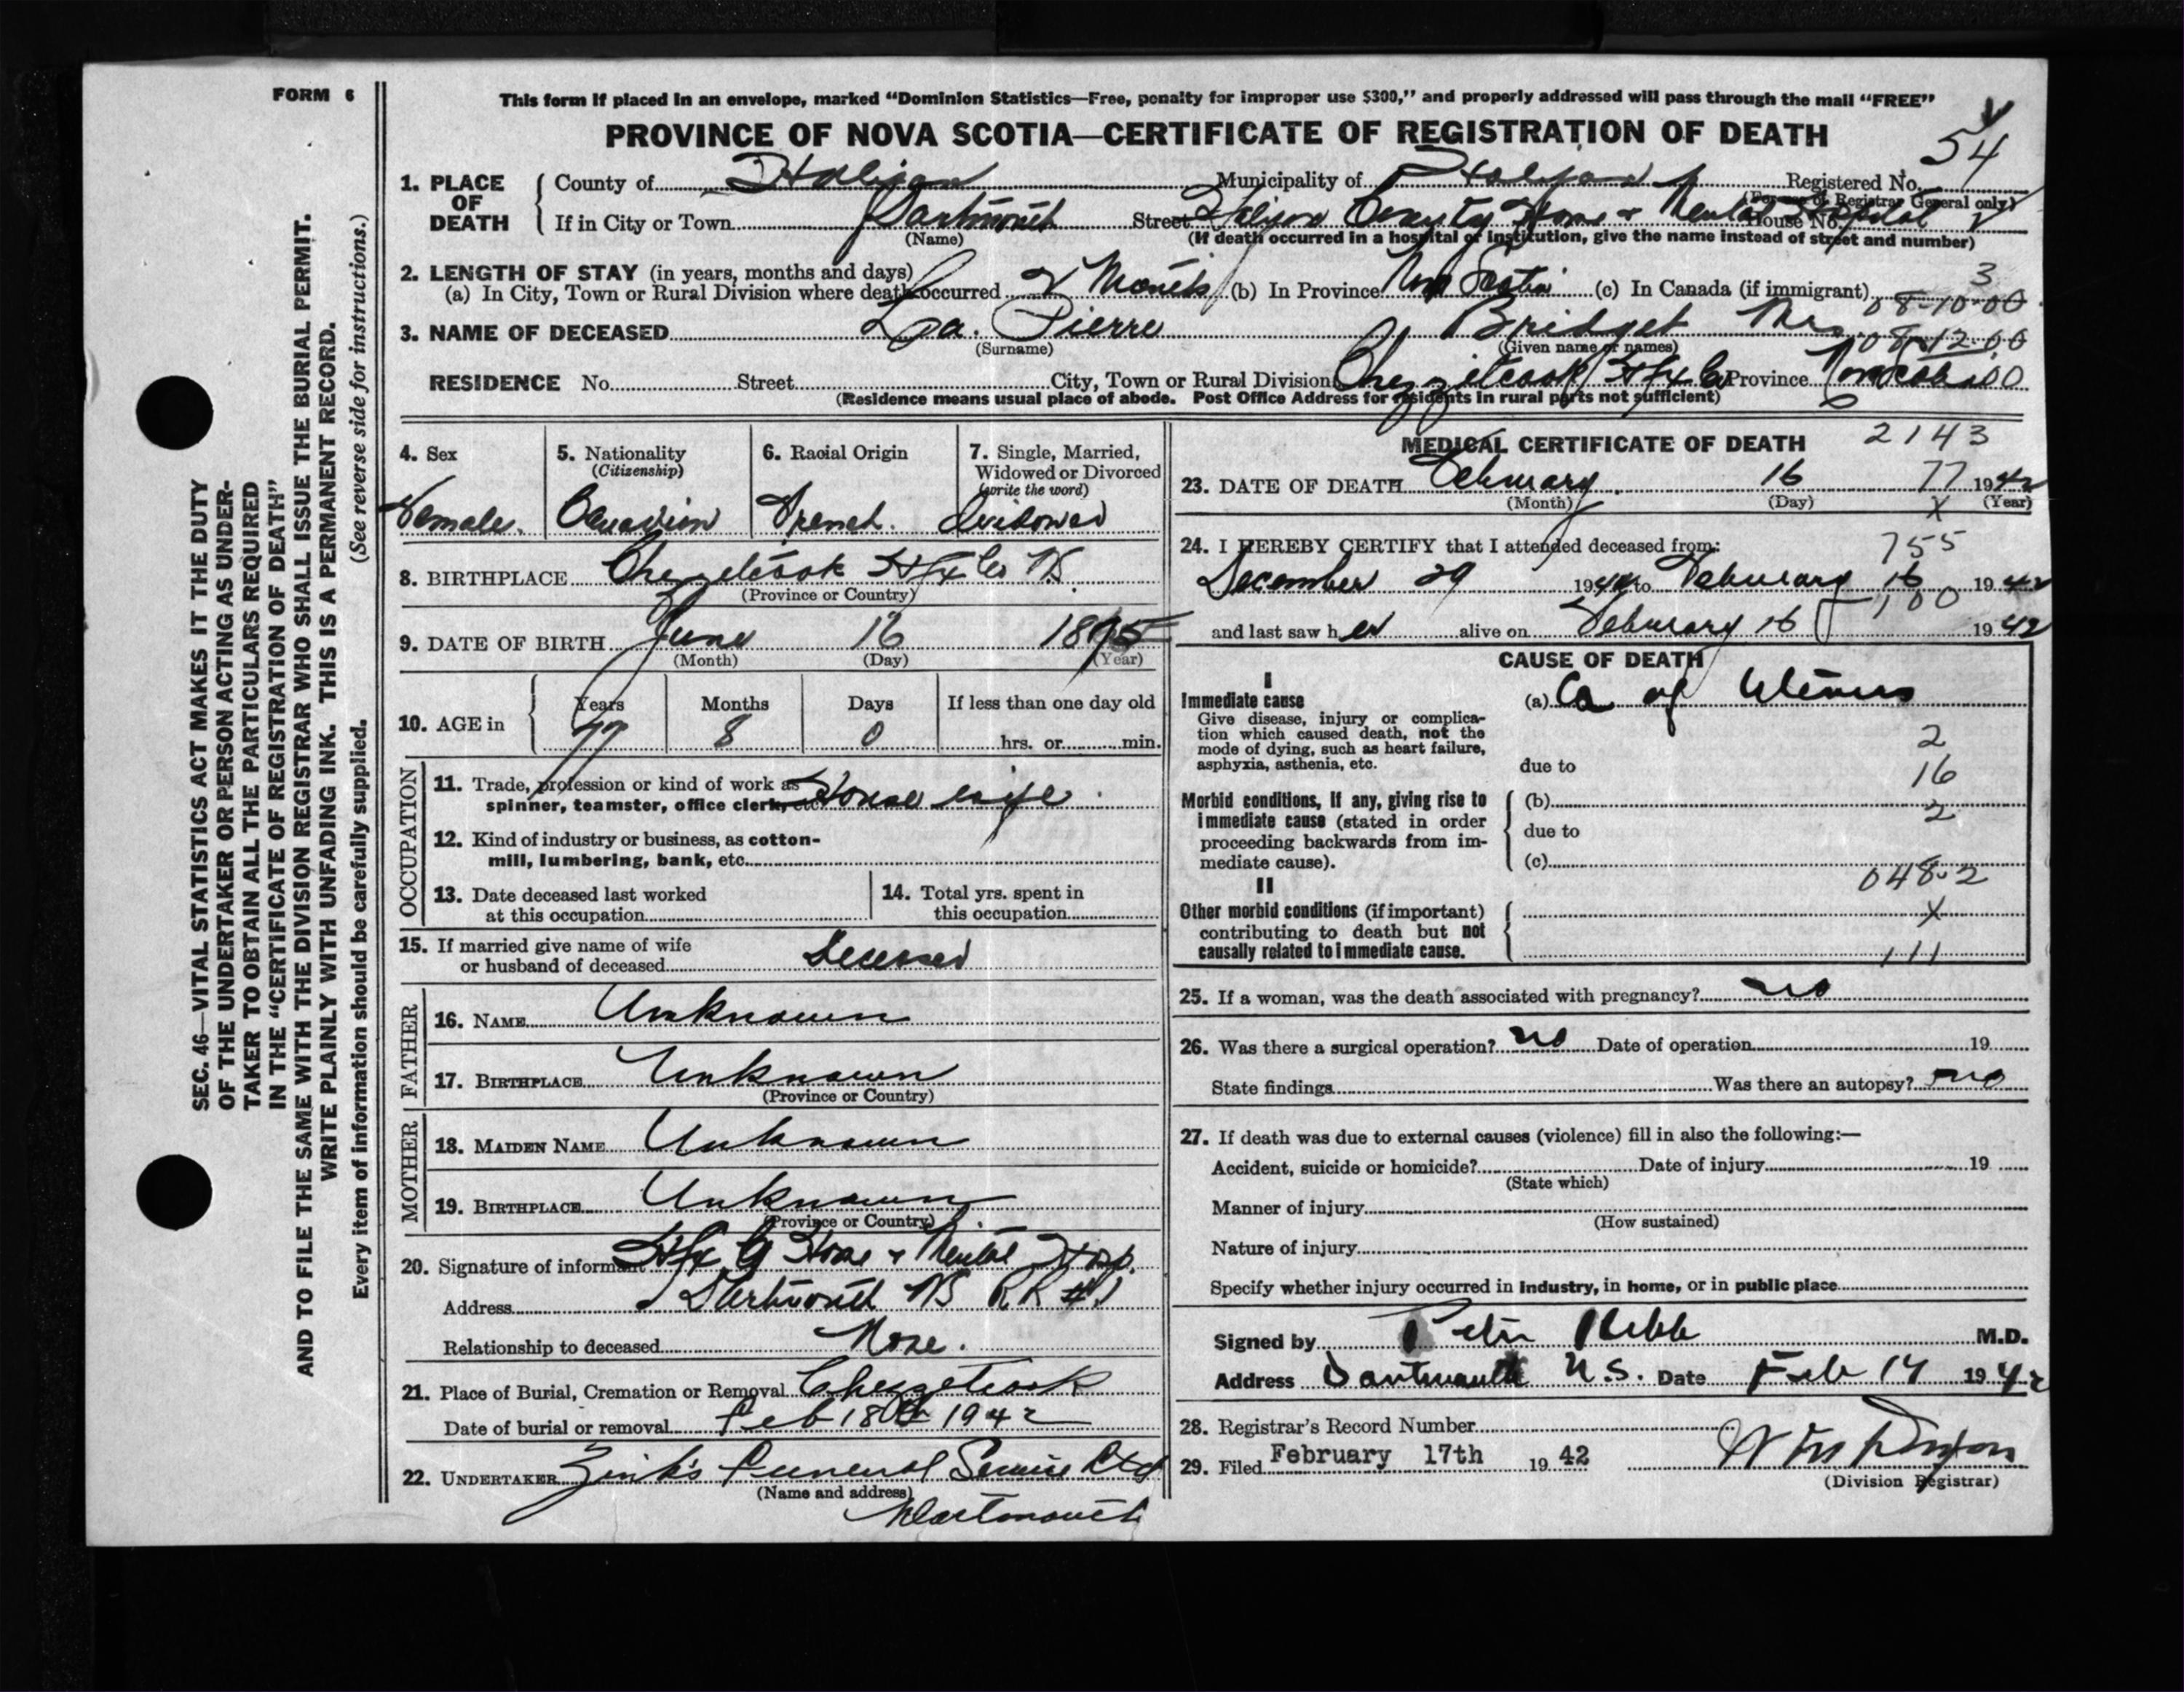 FORM 6
This form if placed in an envelope, marked “Dominion Statistics—Free, penalty for improper use $300,” and properly addressed will pass through the mail “FREE”
PROVINCE OF NOVA SCOTIA—CERTIFICATE OF REGISTRATION OF DEATH
54
1. PLACE OF DEATH { County of Halifax Municipality of Halifax Registered No.
(For use of Registrar General only)
If in City or Town Dartmouth Street Halifax County Home & Mental Hospital House No.
(Name) (If death occurred in a hospital or institution, give the name instead of street and number)
2. LENGTH OF STAY (in years, months and days)
(a) In City, Town or Rural Division where death occurred 2 Months (b) In Province Nova Scotia (c) In Canada (if immigrant) 3
08-10-00
3. NAME OF DECEASED La. Pierre Bridget Mrs
08-12.00
(Surname) (Given name or names)
RESIDENCE No. Street City, Town or Rural Division Chezzetcook Hfx Co Province
(Residence means usual place of abode. Post Office Address for residents in rural parts not sufficient)
4. Sex 5. Nationality (Citizenship) 6. Racial Origin 7. Single, Married, Widowed or Divorced (write the word)
Female. Canadian French. Widowed
8. BIRTHPLACE Chezzetcook Hfx Co NS.
(Province or Country)
9. DATE OF BIRTH June 16
(Month) (Day) (Year)
10. AGE in { Years Months Days If less than one day old
77 8 0 hrs. or min.
OCCUPATION
11. Trade, profession or kind of work as
spinner, teamster, office clerk, etc. House wife.
12. Kind of industry or business, as cotton-
mill, lumbering, bank, etc.
13. Date deceased last worked
at this occupation
14. Total yrs. spent in
this occupation
15. If married give name of wife
or husband of deceased Deceased
FATHER
16. NAME Unknown
17. BIRTHPLACE Unknown
(Province or Country)
MOTHER
18. MAIDEN NAME Unknown
19. BIRTHPLACE Unknown
(Province or Country)
20. Signature of informant Hfx Co Home & Mental Hosp.
Address Dartmouth NS RR #1
Relationship to deceased None.
21. Place of Burial, Cremation or Removal Chezzetcook
Date of burial or removal Feb 18th 1942
22. UNDERTAKER Zink's Funeral Service Ltd
(Name and address)
Dartmouth
MEDICAL CERTIFICATE OF DEATH 2143
23. DATE OF DEATH February 16 77 1942
(Month) (Day) X (Year)
24. I HEREBY CERTIFY that I attended deceased from: 755
December 29 1941 to February 16 1942
100
and last saw her alive on February 16 1942
CAUSE OF DEATH
I
Immediate cause
Give disease, injury or complica-
tion which caused death, not the
mode of dying, such as heart failure,
asphyxia, asthenia, etc.
(a) Ca of Uterus
2
due to 16
Morbid conditions, if any, giving rise to
immediate cause (stated in order
proceeding backwards from im-
mediate cause).
(b)
2
due to
(c)
048.2
II
Other morbid conditions (if important)
contributing to death but not
causally related to immediate cause.
X
111
25. If a woman, was the death associated with pregnancy? no
26. Was there a surgical operation? no Date of operation 19
State findings Was there an autopsy? no
27. If death was due to external causes (violence) fill in also the following:—
Accident, suicide or homicide? Date of injury 19
(State which)
Manner of injury
(How sustained)
Nature of injury
Specify whether injury occurred in industry, in home, or in public place
Signed by Peter M.D.
Address Dartmouth N.S. Date Feb 17 1942
28. Registrar's Record Number
29. Filed February 17th 19 42
(Division Registrar)
SEC. 46—VITAL STATISTICS ACT MAKES IT THE DUTY
OF THE UNDERTAKER OR PERSON ACTING AS UNDER-
TAKER TO OBTAIN ALL THE PARTICULARS REQUIRED
IN THE “CERTIFICATE OF REGISTRATION OF DEATH”
AND TO FILE THE SAME WITH THE DIVISION REGISTRAR WHO SHALL ISSUE THE BURIAL PERMIT.
WRITE PLAINLY WITH UNFADING INK. THIS IS A PERMANENT RECORD.
Every item of information should be carefully supplied. (See reverse side for instructions.)